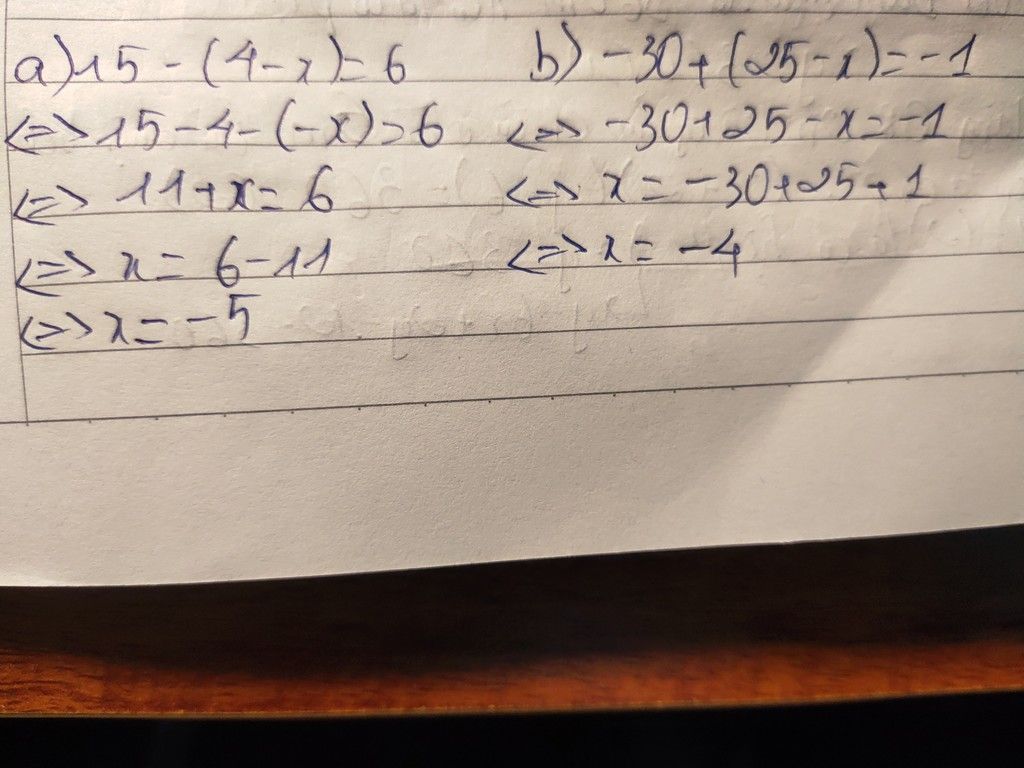 a) 15 - (4 - x) = 6
<=> 15 - 4 - (-x) = 6
<=> 11 + x = 6
<=> x = 6 - 11
<=> x = -5
b) -30 + (25 - x) = -1
<=> -30 + 25 - x = -1
<=> x = -30 + 25 + 1
<=> x = -4